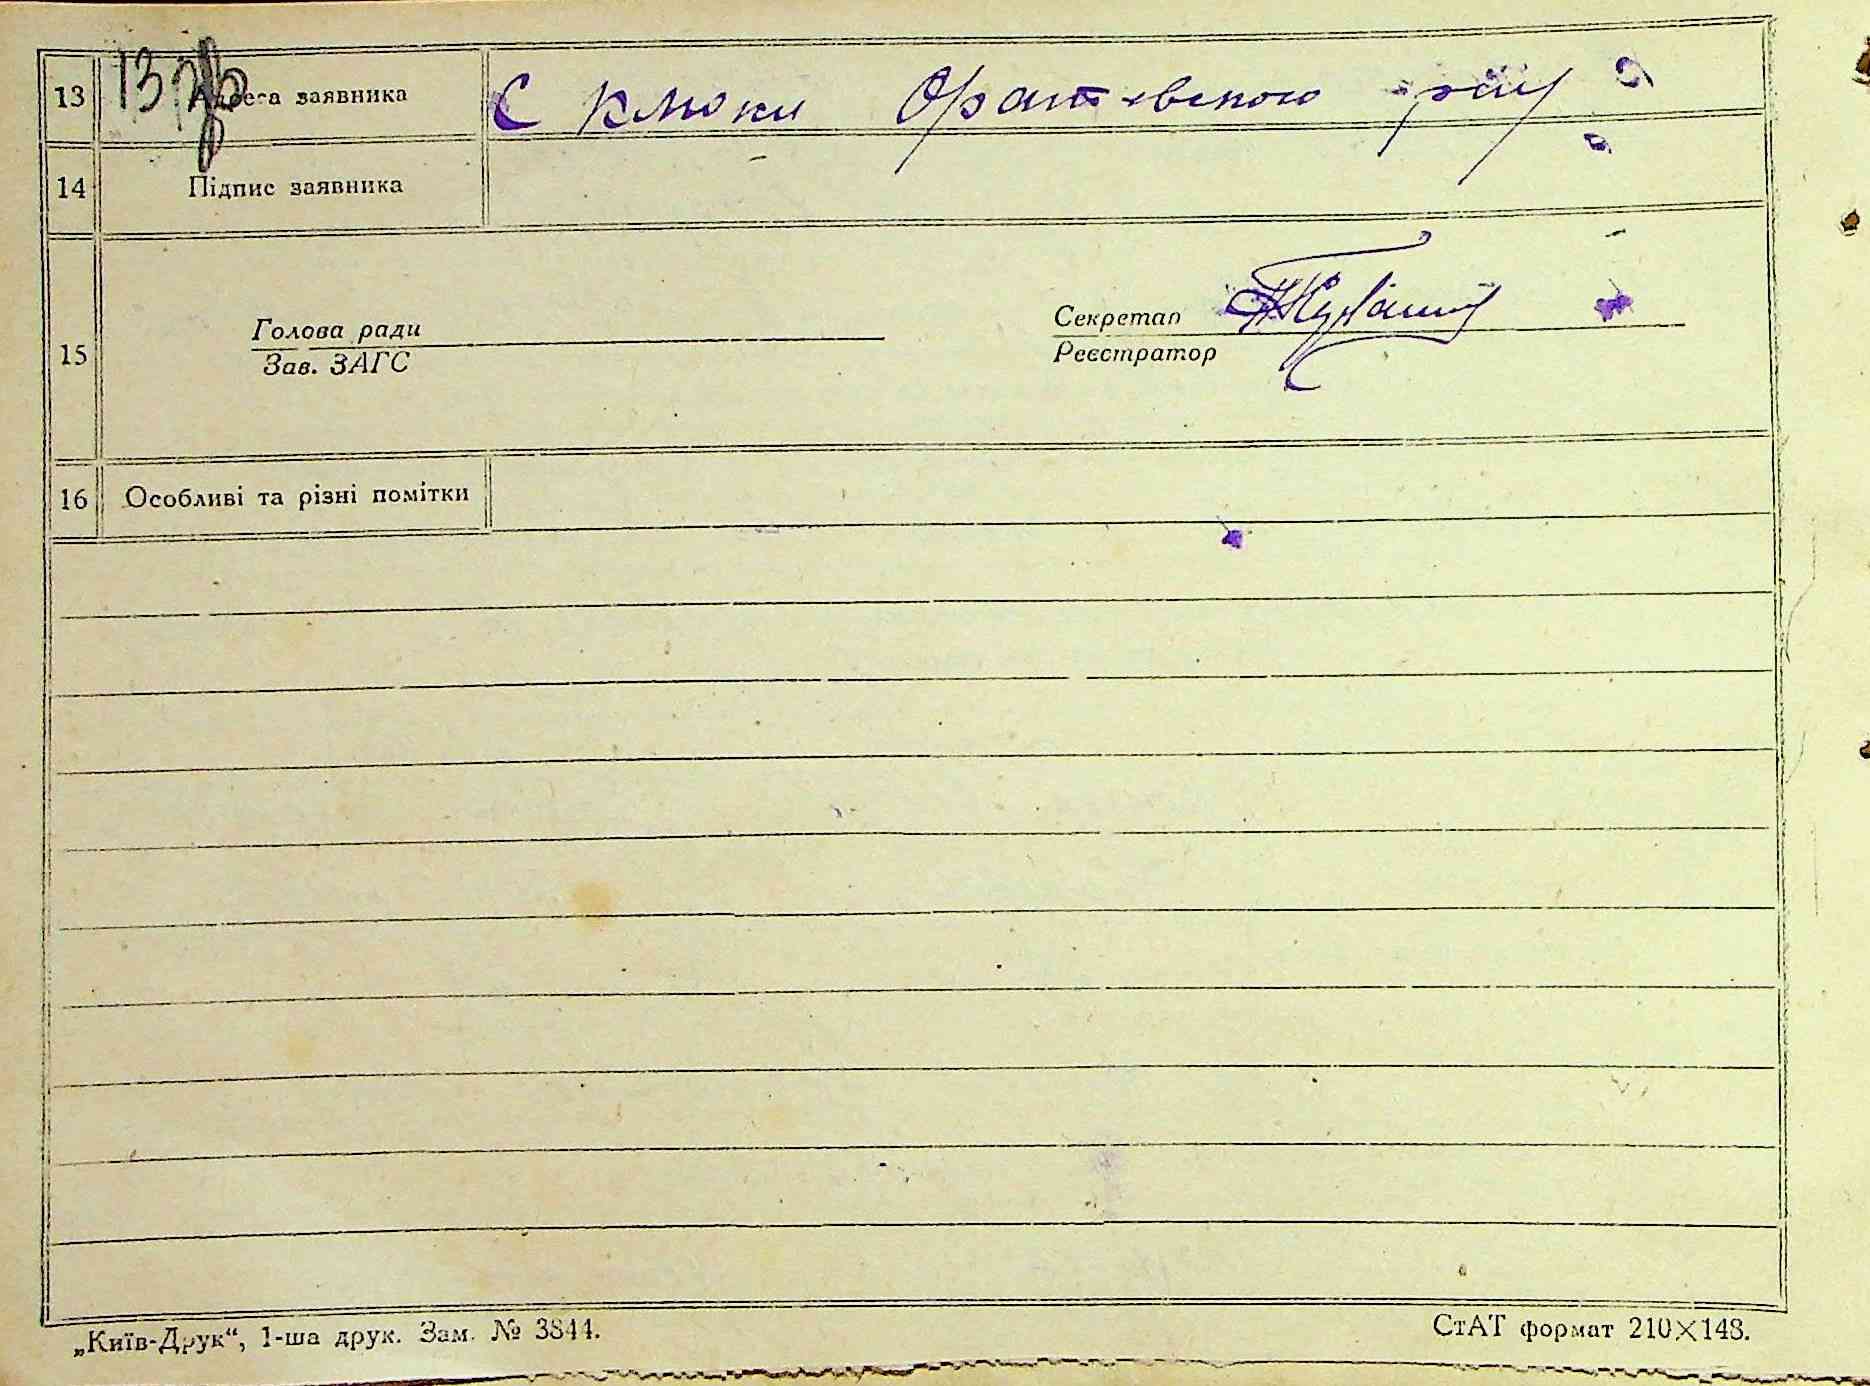 13 Адреса заявника С Клюки Оратовского р-ну
14 Підпис заявника
Секретар
Голова ради
15
Зав. ЗАГС Реєстратор
16 Особливі та різні помітки
„Київ-Друк“, 1-ша друк. Зам. № 3844. СтАТ формат 210×148.